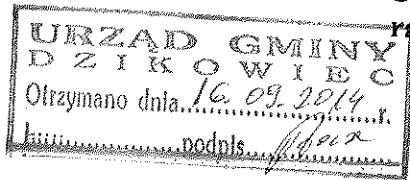 URZĄD GMINY
DZIKOWIEC
Otrzymano dnia 16. 09. 2014 r.
podpis